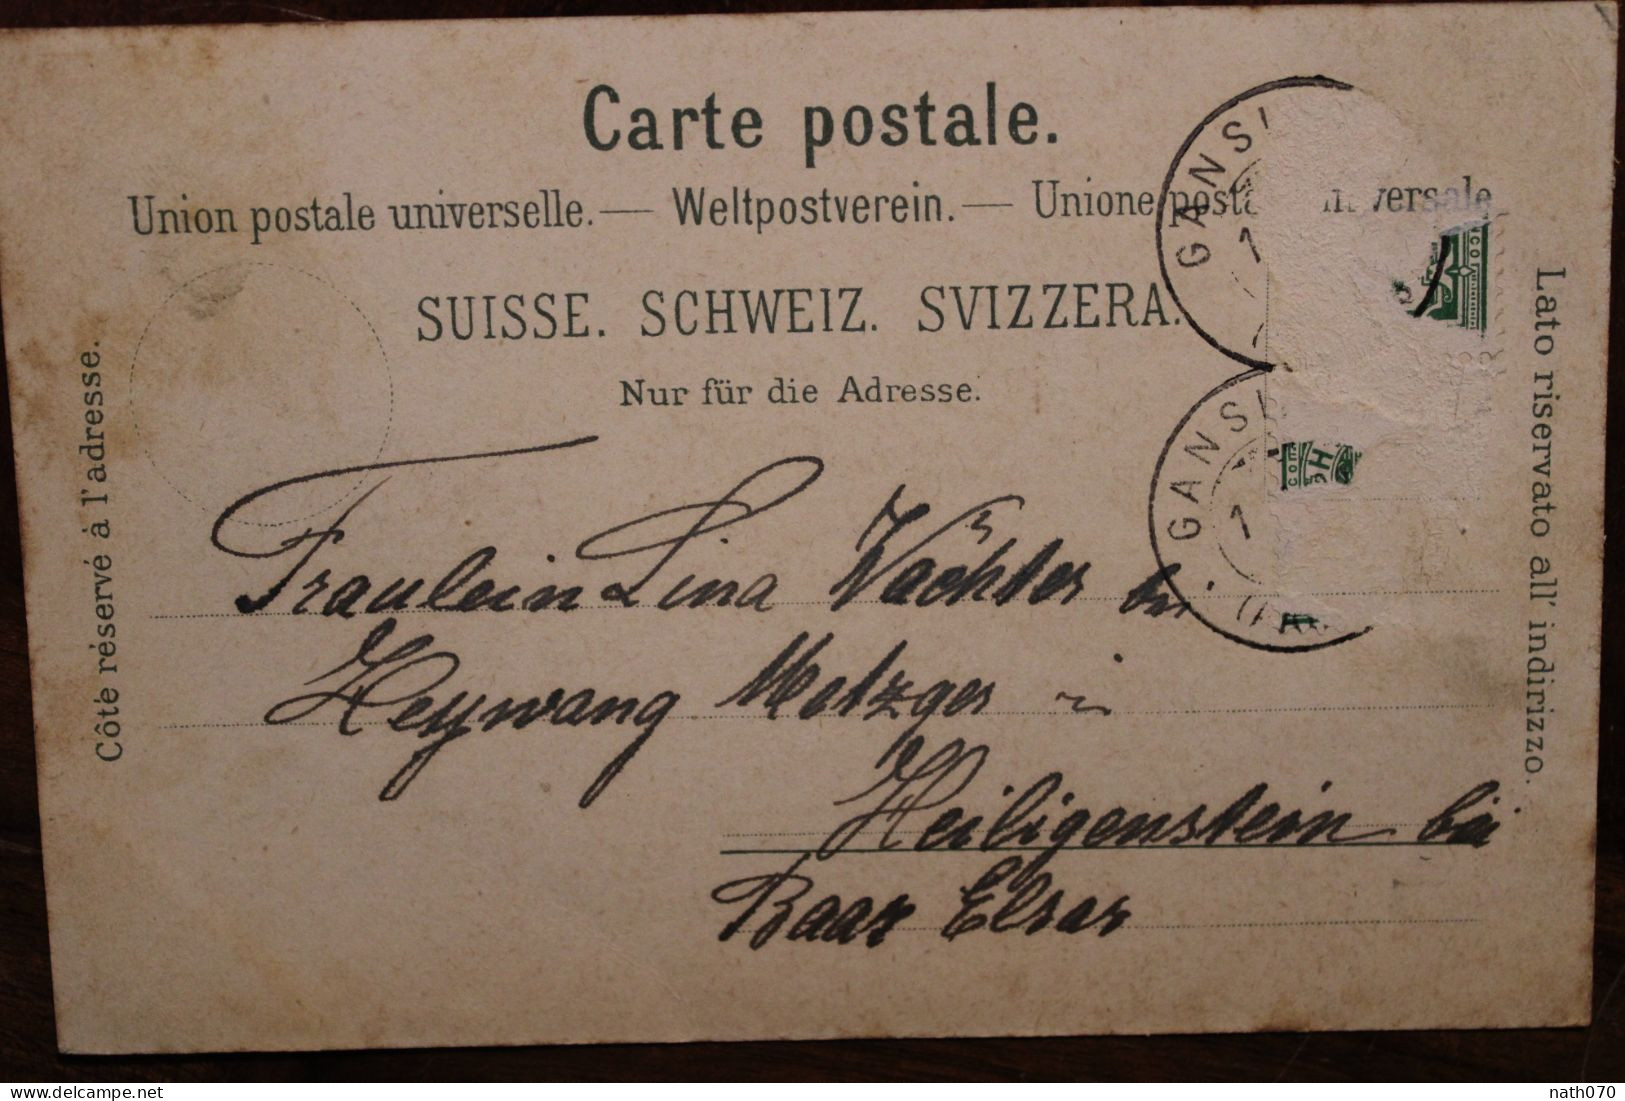 Carte postale.
Union postale universelle. — Weltpostverein. — Unione postale universale
SUISSE. SCHWEIZ. SVIZZERA.
Nur für die Adresse.
Côté réservé à l'adresse.
Lato riservato all' indirizzo.
GANSI
1
GANSI
1
Fräulein Lina Wächter bei
Heywang Metzger in
Heiligenstein bei
Baar Elsas
nath070